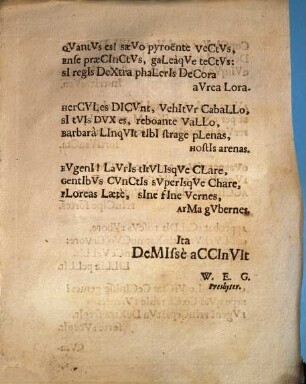 QVantVs es! sæVo pyroënte VeCtVs,
Ense præCInCtVs, gaLeâqVe teCtVs:
SI regIs DeXtra phaLerIs DeCora
aVrea Lora.
HerCVLes DICVnt, VehItVr CabaLLo,
SI tVIs DVX es, reboante VaLLo,
Barbarâ LInqVIt tIbI strage pLenas,
HostIs arenas.
EVgenI! LaVrIs tItVLIsqVe CLare,
GentIbVs CVnCtIs sVperIsqVe Chare,
FLoreas Lætè, sIne fIne Vernes,
ArMa gVbernes.
Ita
DeMIssè aCCInVIt
W. E. G.
Presbyter.